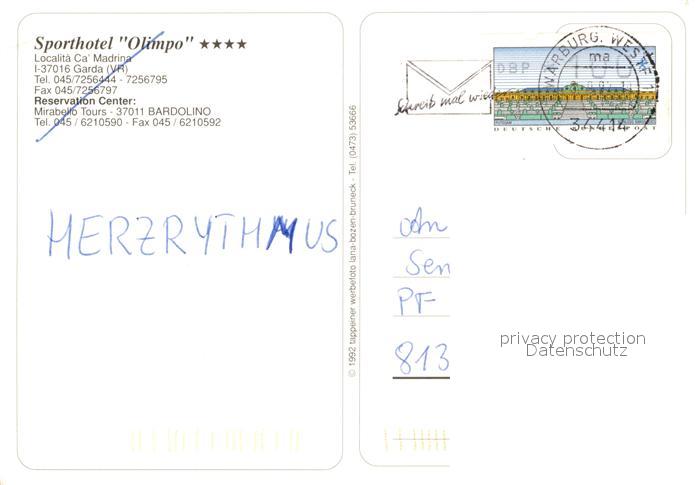 Sporthotel "Olimpo" ★★★★
Località Ca' Madrina
I-37016 Garda (VR)
Tel. 045/7256444 - 7256795
Fax 045/7256797
Reservation Center:
Mirabello Tours - 37011 BARDOLINO
Tel. 045 / 6210590 - Fax 045 / 6210592
HERZRYTHMUS
© 1992 tappeiner werbefoto lana-bozen-bruneck - Tel. (0473) 53666
Schreib mal wieder
WARBURG, WESTF
ma
DBP 100
37414
DEUTSCHE BUNDESPOST
An
Sen
PF
813
privacy protection
Datenschutz